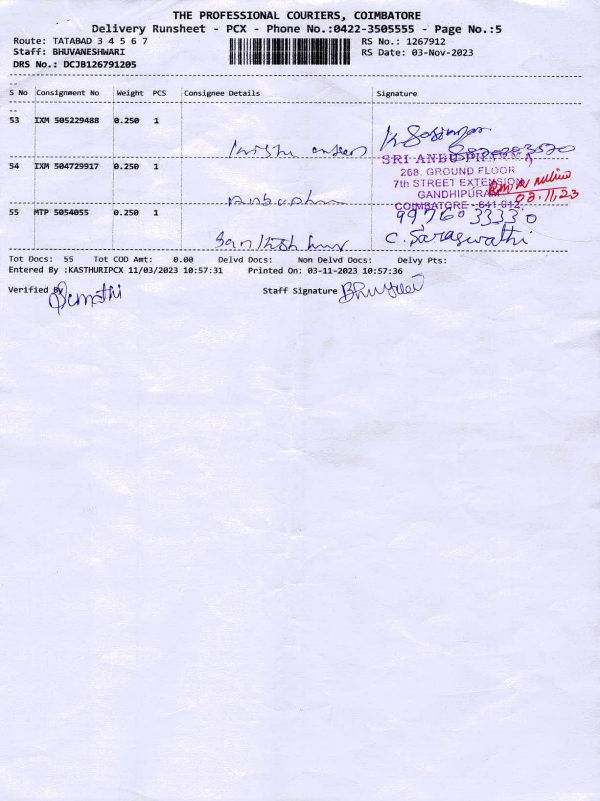 THE PROFESSIONAL COURIERS, COIMBATORE
Delivery Runsheet - PCX - Phone No.:0422-3505555 - Page No.:5
Route: TATABAD 3 4 5 6 7 RS No.: 1267912
Staff: BHUVANESHWARI RS Date: 03-Nov-2023
DRS No.: DCJB126791205
S No Consignment No Weight PCS Consignee Details Signature
53 IXM 505229488 0.250 1
SRI ANBU
54 IXM 504729917 0.250 1
268, GROUND FLOOR
7th STREET EXTENSION
GANDHIPURAM
COIMBATORE - 641 012.
03.11.23
55 MTP 5054055 0.250 1
99760 33330
C. Saraswathi
Tot Docs: 55 Tot COD Amt: 0.00 Delvd Docs: Non Delvd Docs: Delvy Pts:
Entered By :KASTHURIPCX 11/03/2023 10:57:31 Printed On: 03-11-2023 10:57:36
Verified By Staff Signature